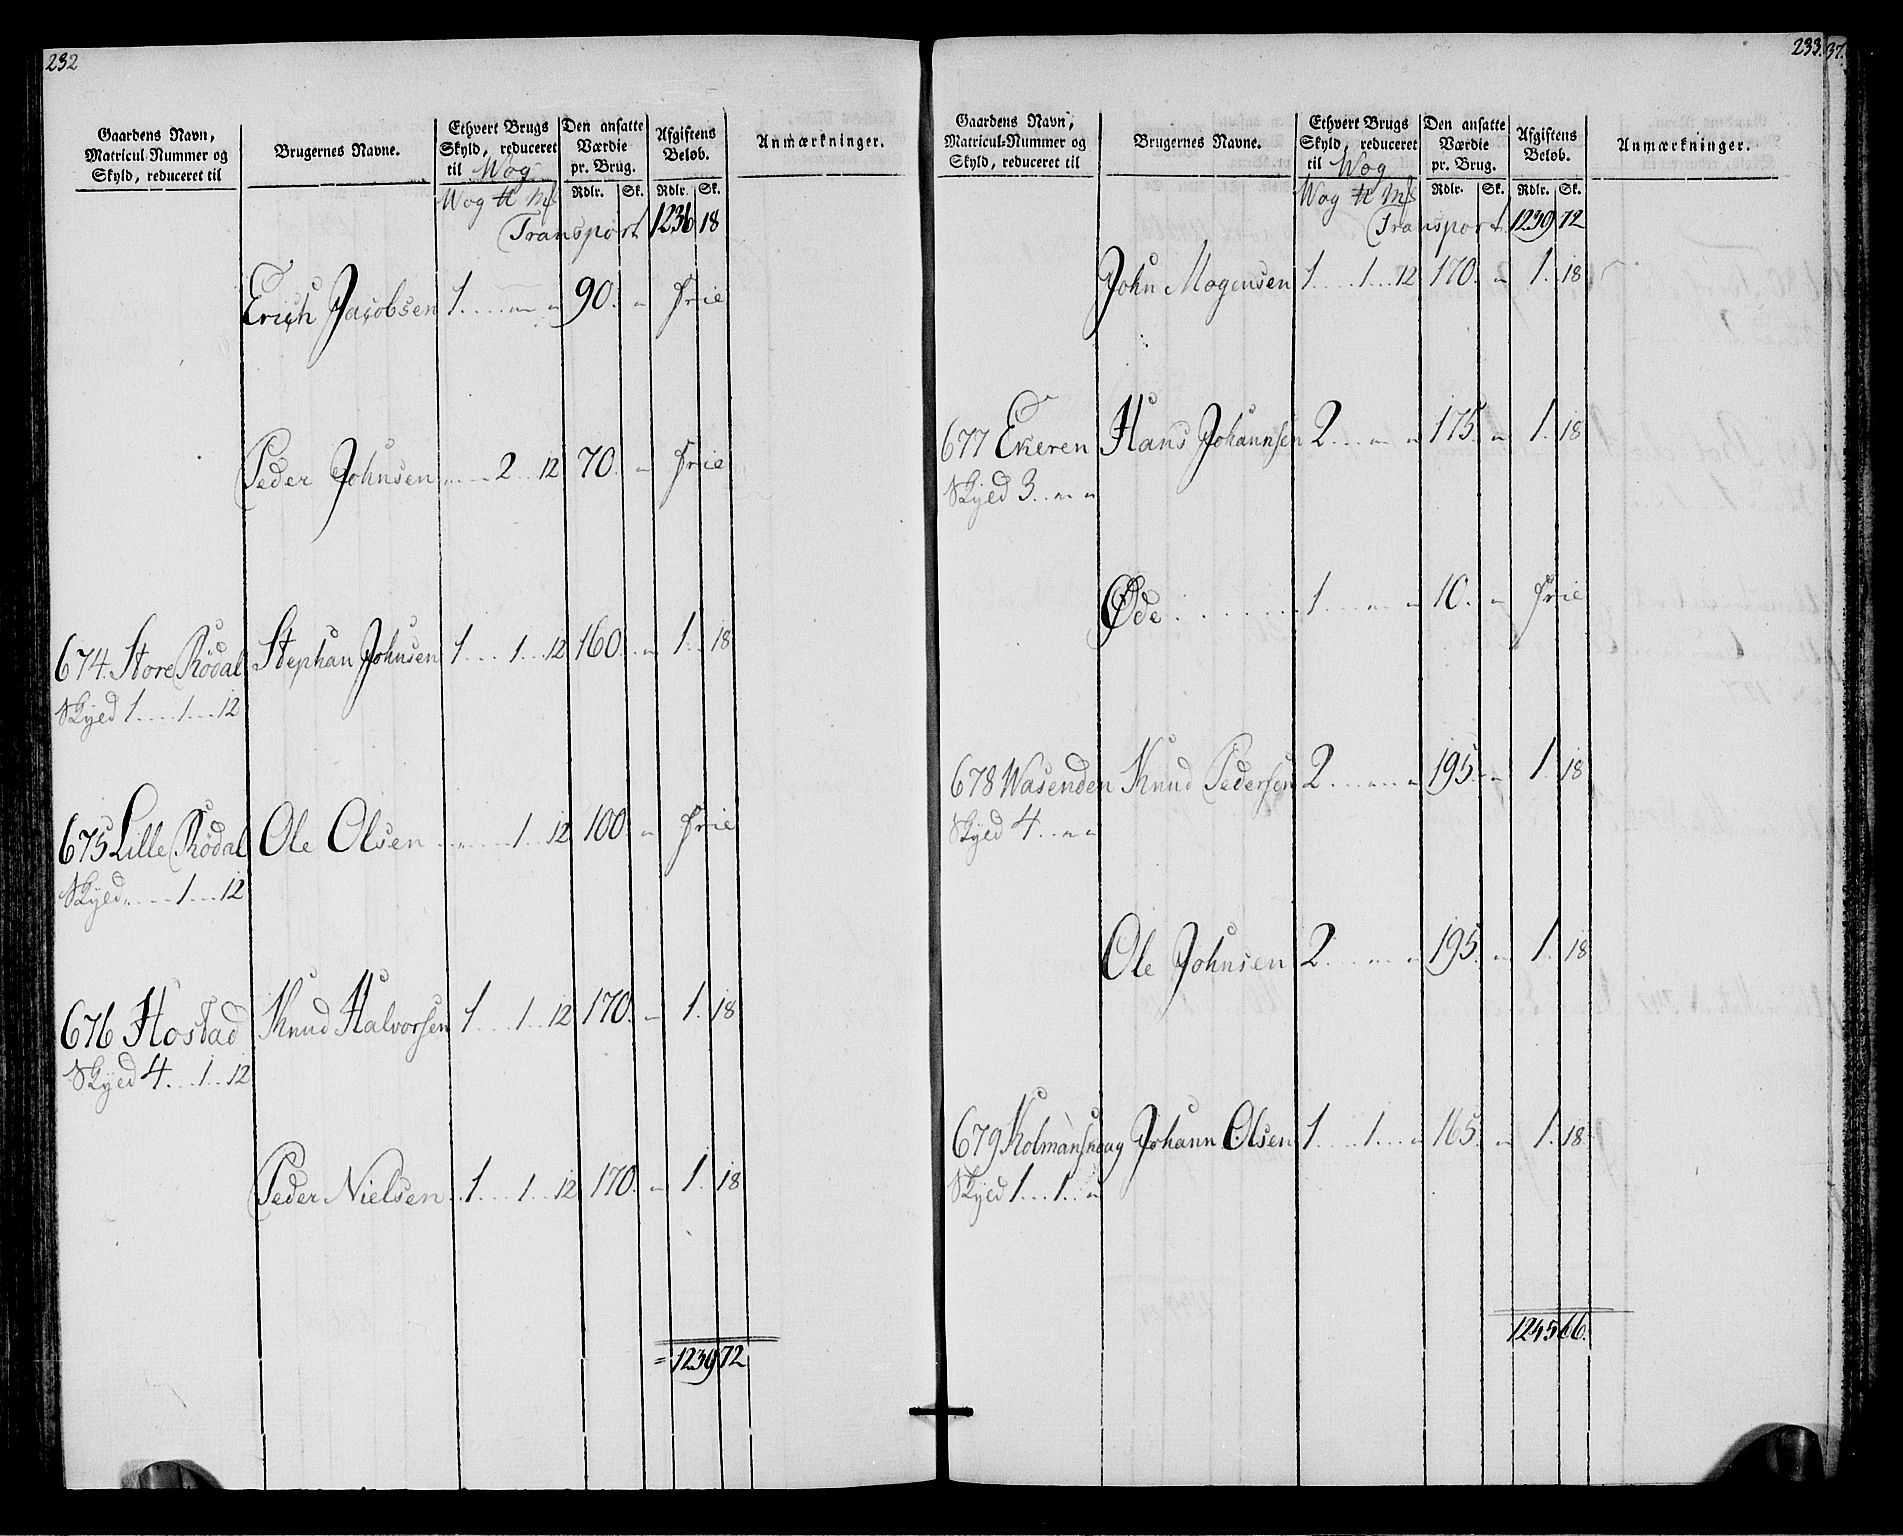 232
Gaardens Navn, Matricul-Nummer og Skyld, reduceret til
Brugernes Navne.
Ethvert Brugs Skyld, reduceret til Wog
Den ansatte Værdie pr. Brug.
Afgiftens Beløb.
Anmærkninger.
Wog ℔ Mk Rdlr. Sk. Rdlr. Sk.
Transport 1236 18
Erich Jacobsen 1 . . . . " " 90. " frie
Peder Johnsen . . . . 2 . . 12 70. " frie
674. Store Rödal Stephan Johnsen 1 . . . 1 . . 12 160. " 1. 18
Skyld 1 . . . . 1 . . . 12
675 Lille Rödal Ole Olsen . . " . . . 1 . . 12 100 " frie
Skyld " . . . 1 . . . 12
676 Hostad Knud Halvorsen 1 . . . 1 . . 12 170. " 1. 18
Skyld 4 . . . 1 . . 12
Peder Nielsen . . 1 . . . 1 . . 12 170. " 1. 18
= 1239 72
233. 37.
Gaardens Navn, Matricul-Nummer og Skyld, reduceret til
Brugernes Navne.
Ethvert Brugs Skyld, reduceret til Wog
Den ansatte Værdie pr. Brug.
Afgiftens Beløb.
Anmærkninger.
Wog ℔ Mk Rdlr. Sk. Rdlr. Sk.
Transport 1239 72
John Mogensen 1 . . . . 1 . . 12 170. " 1. 18
677 Ekeren Hans Johannsen 2 . . . " " 175. " 1. 18
Skyld 3 . . " "
Øde . . . . . . . . 1 . . . " " 10. " frie
678 Wasenden Knud Pedersen 2 . . . " " 195. " 1. 18
Skyld 4 . . " "
Ole Johnsen 2 . . . " " 195. " 1. 18
679 Kolmansnaag Johann Olsen 1 . . . . 1 . . . " 165. " 1. 18
Skyld 1 . . . 1 . . "
1245 66.